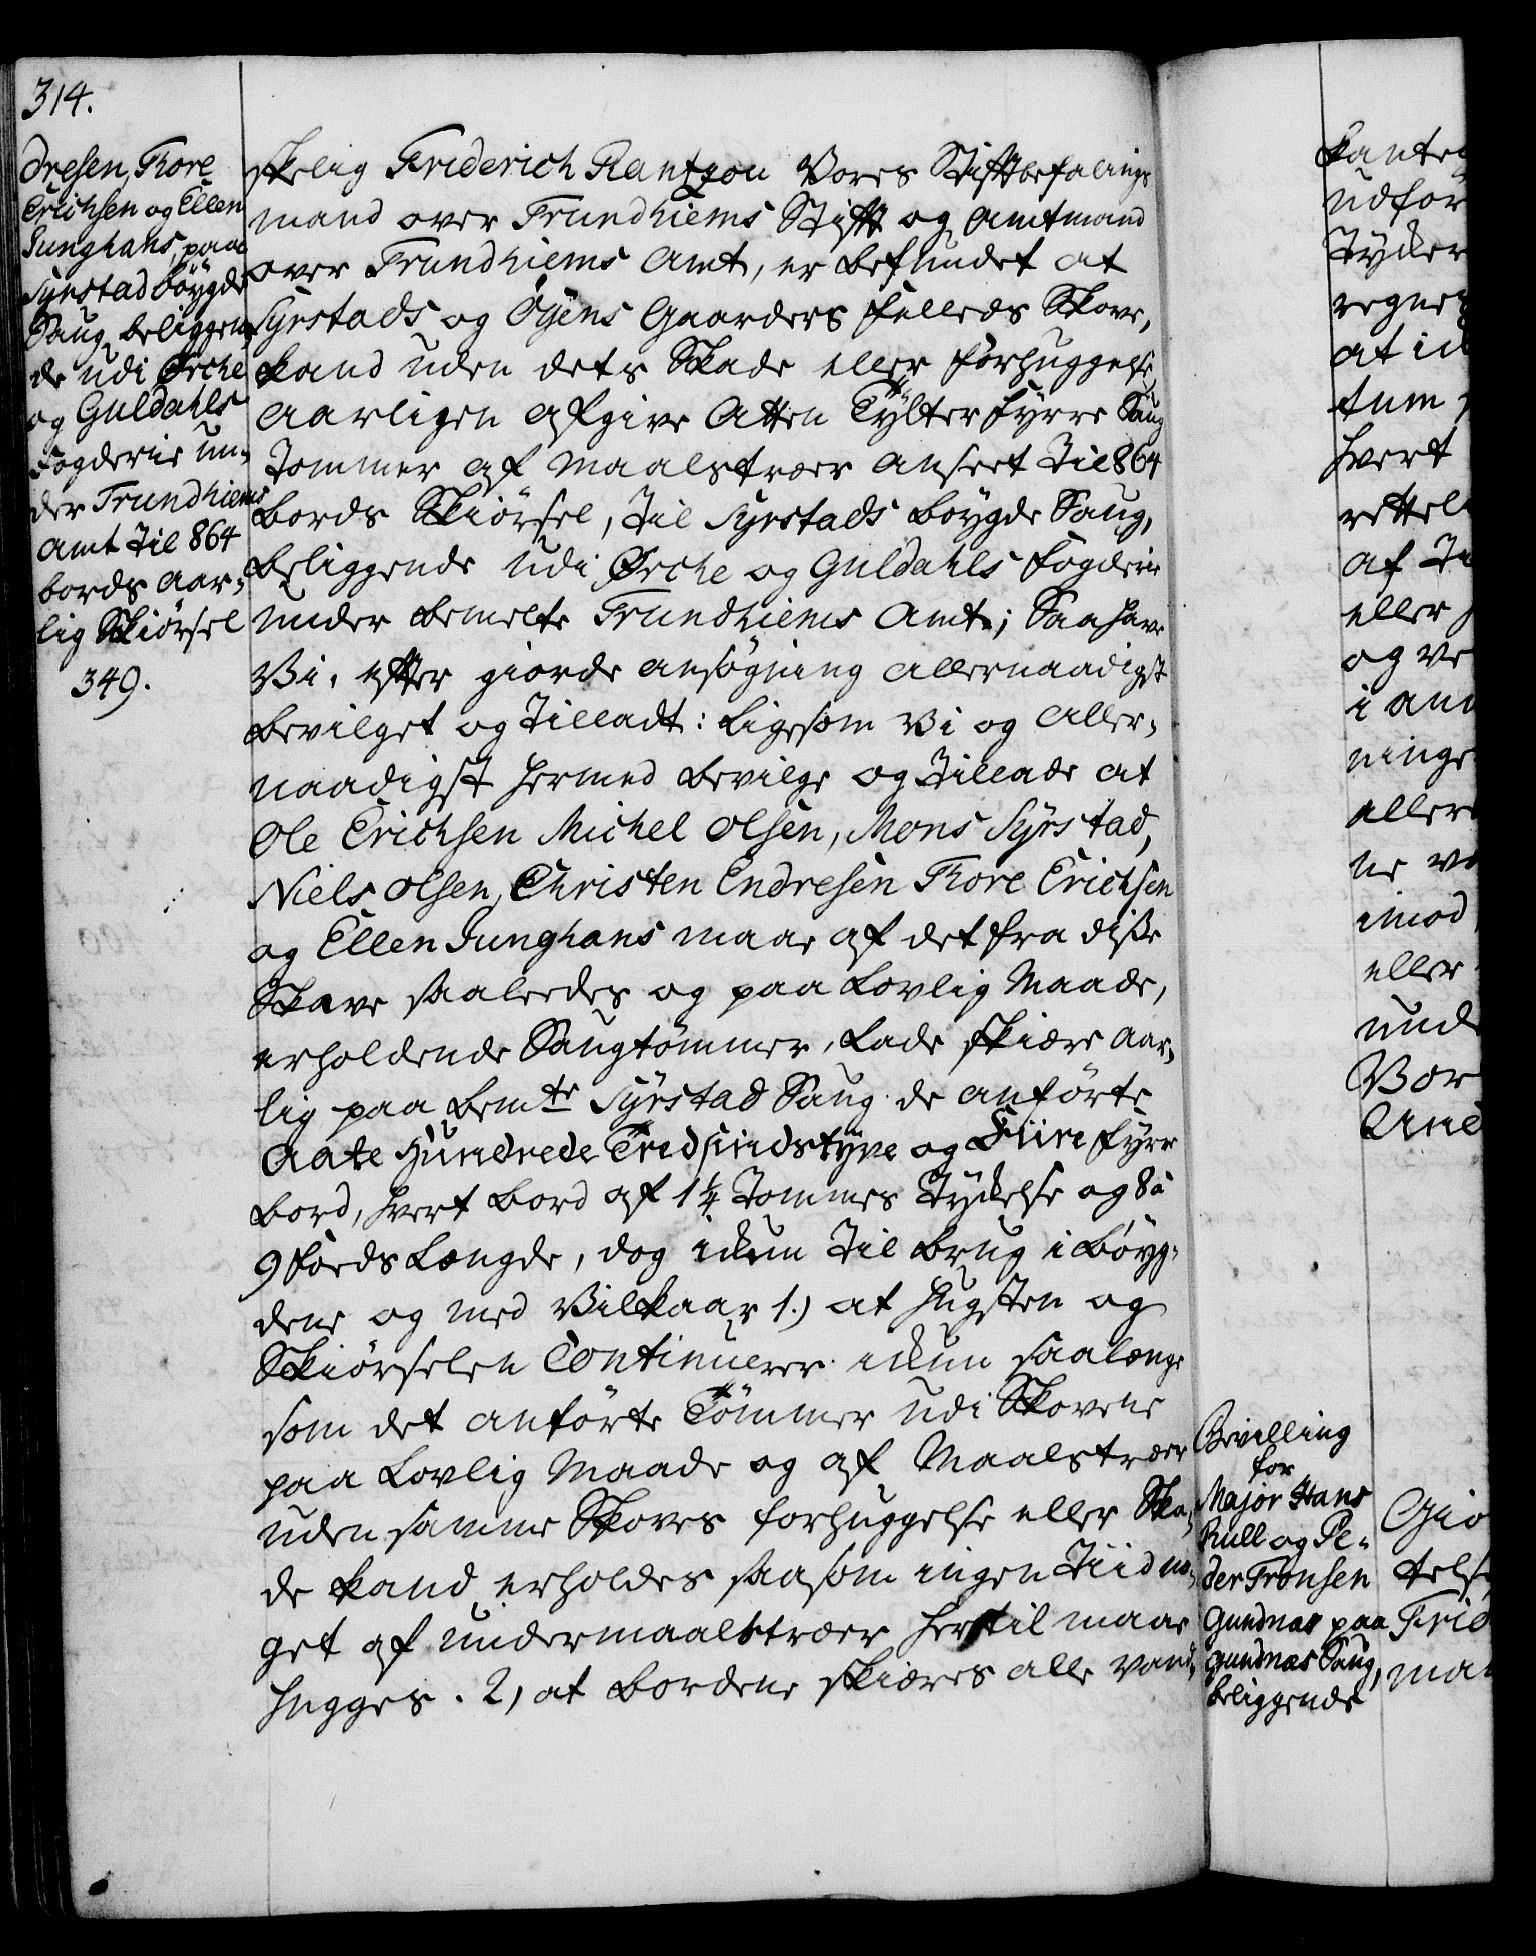 314.
dresen, Thore
Erichsen og Ellen
Junghans, paa
Syrstad böygde
Saug beliggen¬
de udi Ørche
og Guldahls
Fogderie un¬
der Trundhiems
Amt til 864
bords aar¬
lig Skiörsel
349.
skelig Friderich Rantzou Vores Stiftbefalings
mand over Trundhiems Stift og Amtmand
over Trundhiems Amt, er befundet at
Syrstads og Öyens Gaarders fælleds Skove,
kand uden dets Skade eller forhuggelse
aarligen afgive Atten Tylter fyrre Saug
Tommer af Maalstræer anseet til 864
bords Skiörsel, til Syrstads böygde Saug,
beliggende udi Ørche og Guldahls fogderie
under bemelte Trundhiems Amt; Saa have
Vi, efter giorde ansögning allernaadigst
bevilget og tilladt: Ligesom Vi og aller¬
naadigst hermed bevilge og tillade at
Ole Erichsen Michel Olsen, Mons Syrstad,
Niels Olsen, Christen Endresen Thore Erichsen
og Ellen Junghans maae af det fra disse
Skove saaledes og paa Lovlig Maade,
erholdende Saugtömmer, lade skiære aar¬
lig paa bemte Syrstad Saug de anförte
Aate Hundrede Tredsindstyve og Fiire fyrr
bord, hvert bord af 1 1/4 Tommes Tykelse og 8 à
9 foeds Længde, dog ickun til brug i böyg¬
dene og med Vilkaar 1.) at hugsten og
Skiörselen Continuerer ickun saalænge
som det anförte Tömmer udi Skovene
paa Lovlig Maade og af Maalstræer
uden samme Skoves forhuggelse eller Ska¬
de kand erholdes saasom ingen Tiid no¬
get af undermaalstræer hertil maae
hugges. 2, at bordene skiæres alle vand¬
kante
udfor
Tyker
regne
at ick
tum
hvert
rettel
af
eller
og ve
i an
ninge
aller
ne
imod
eller
und
Vor
Bevilling
for
Major Hans
Rull og Pe¬
der Tronsen
Gundnas paa
gundnas Saug,
beliggende
Gio
telse
Frid
man